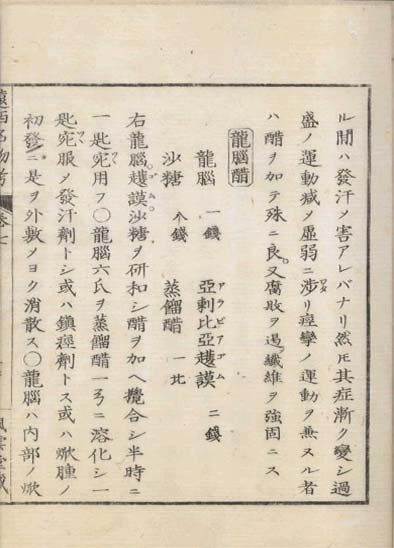 ル間ハ發汗ノ害アレバナリ然㆑𪜈其症漸ク變シ過
盛ノ運動減ノ虚弱ニ渉リ痙攣ノ運動ヲ兼ヌル者
ハ醋ヲ加テ殊ニ良。又腐敗ヲ遏纖維ヲ強固ニス
龍腦醋
龍腦 一錢 亞剌比亞護謨 二錢
アラビアゴム
沙糖 个錢 蒸餾醋 一
右龍腦護謨沙糖ヲ研和シ醋ヲ加ヘ攪合シ半時ニ
一匙宛用フ〇龍腦六氏ヲ蒸餾醋一ニ溶化シ一
匙宛服メ發汗劑トシ或ハ鎮痙劑トス或ハ焮腫ノ
初發ニ是ヲ外敷ノヨク消散ス〇龍腦ハ内部ノ焮
遠西名物考 卷七